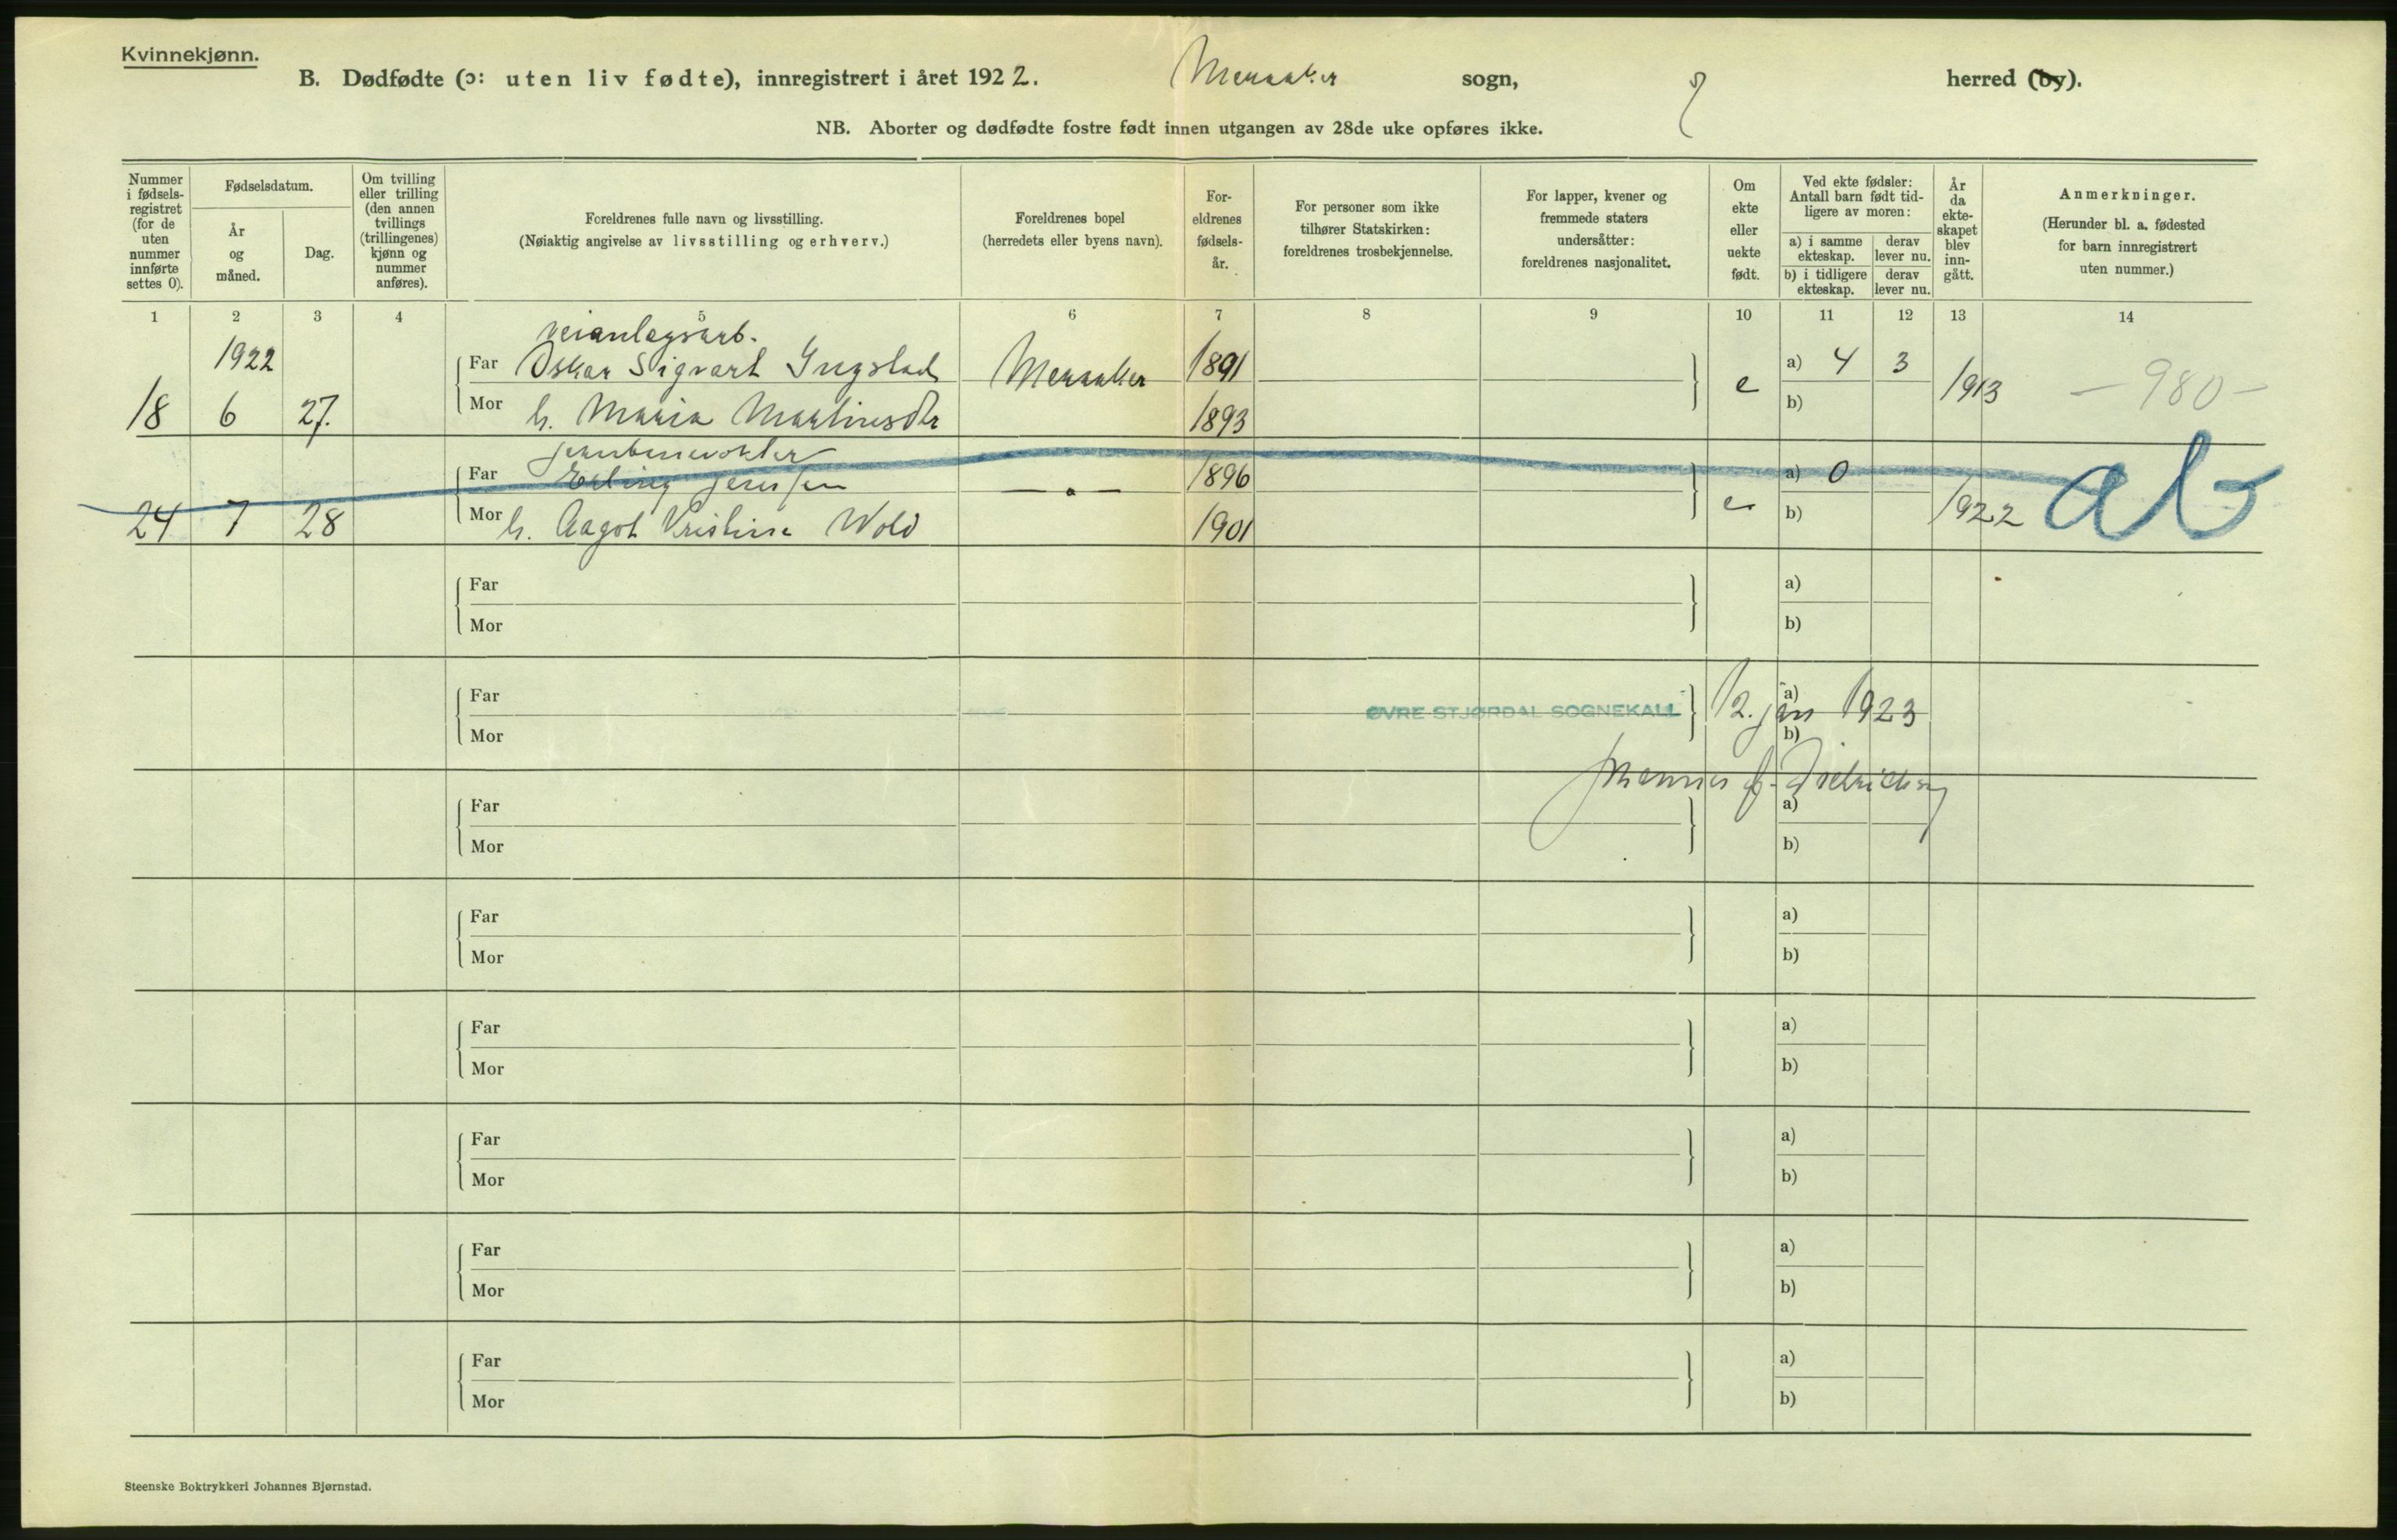 Kvinnekjønn.
B. Dødfødte (ɔ: uten liv fødte), innregistrert i året 1922. Meraaker sogn, herred (by).
NB. Aborter og dødfødte fostre født innen utgangen av 28de uke opføres ikke.
Nummer i fødsels-registret (for de uten nummer innførte settes 0).
Fødselsdatum.
År og måned.
Dag.
Om tvilling eller trilling (den annen tvillings (trillingenes) kjønn og nummer anføres).
Foreldrenes fulle navn og livsstilling.
(Nøiaktig angivelse av livsstilling og erhverv.)
Foreldrenes bopel
(herredets eller byens navn).
For-eldrenes fødsels-år.
For personer som ikke tilhører Statskirken: foreldrenes trosbekjennelse.
For lapper, kvener og fremmede staters undersåtter: foreldrenes nasjonalitet.
Om ekte eller uekte født.
Ved ekte fødsler: Antall barn født tid-ligere av moren:
a) i samme ekteskap. derav lever nu.
b) i tidligere ekteskap. derav lever nu.
År da ekte-skapet blev inn-gått.
Anmerkninger.
(Herunder bl. a. fødested for barn innregistrert uten nummer.)
1 2 3 4 5 6 7 8 9 10 11 12 13 14
veianlegsarb.
1922 Far Oskar Sigvart Ingstad Meraaker 1891 e a) 4 3 1913 — 980 —
18 6 27. Mor h. Maria Martinusdtr 1893 b)
Far Erling Jenssen — „ — 1896 e a) 0 1922 ab
24 7 28 Mor h. Aagot Kristine Wold 1901 b)
Far a)
Mor b)
Far ØVRE STJØRDAL SOGNEKALL 12. jan 1923 a)
Mor b)
Far a)
Mor b)
Far a)
Mor b)
Far a)
Mor b)
Far a)
Mor b)
Far a)
Mor b)
Far a)
Mor b)
Steenske Boktrykkeri Johannes Bjørnstad.